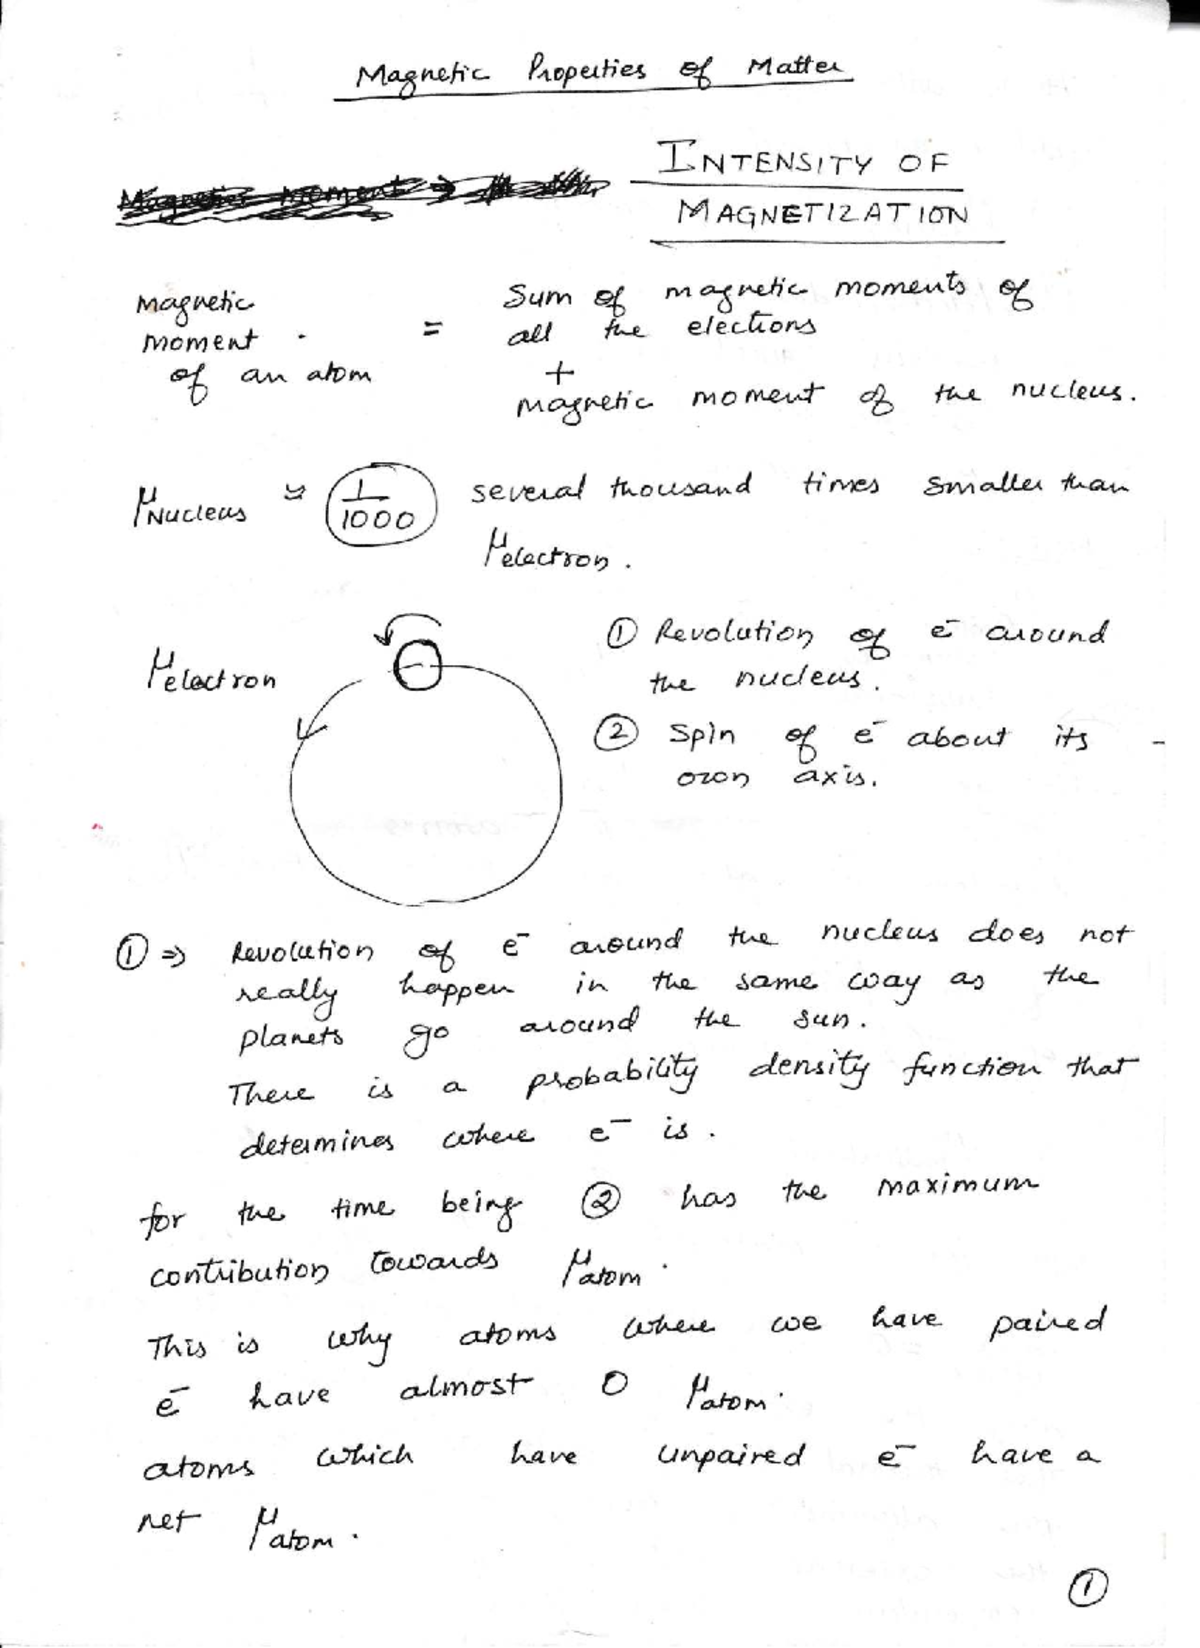 Magnetic Properties of Matter
Magnetic Moment →
INTENSITY OF
MAGNETIZATION
Magnetic
moment
of an atom
=
Sum of magnetic moments of
all the electrons
+
magnetic moment of the nucleus.
μNucleus ≈ 1/1000 several thousand times smaller than
μelectron.
μelectron
① Revolution of e⁻ around
the nucleus.
② Spin of e⁻ about its
own axis.
① ⇒ Revolution of e⁻ around the nucleus does not
really happen in the same way as the
planets go around the sun.
There is a probability density function that
determines where e⁻ is.
for the time being ② has the maximum
contribution towards μatom.
This is why atoms where we have paired
e⁻ have almost 0 μatom.
atoms which have unpaired e⁻ have a
net μatom.
①